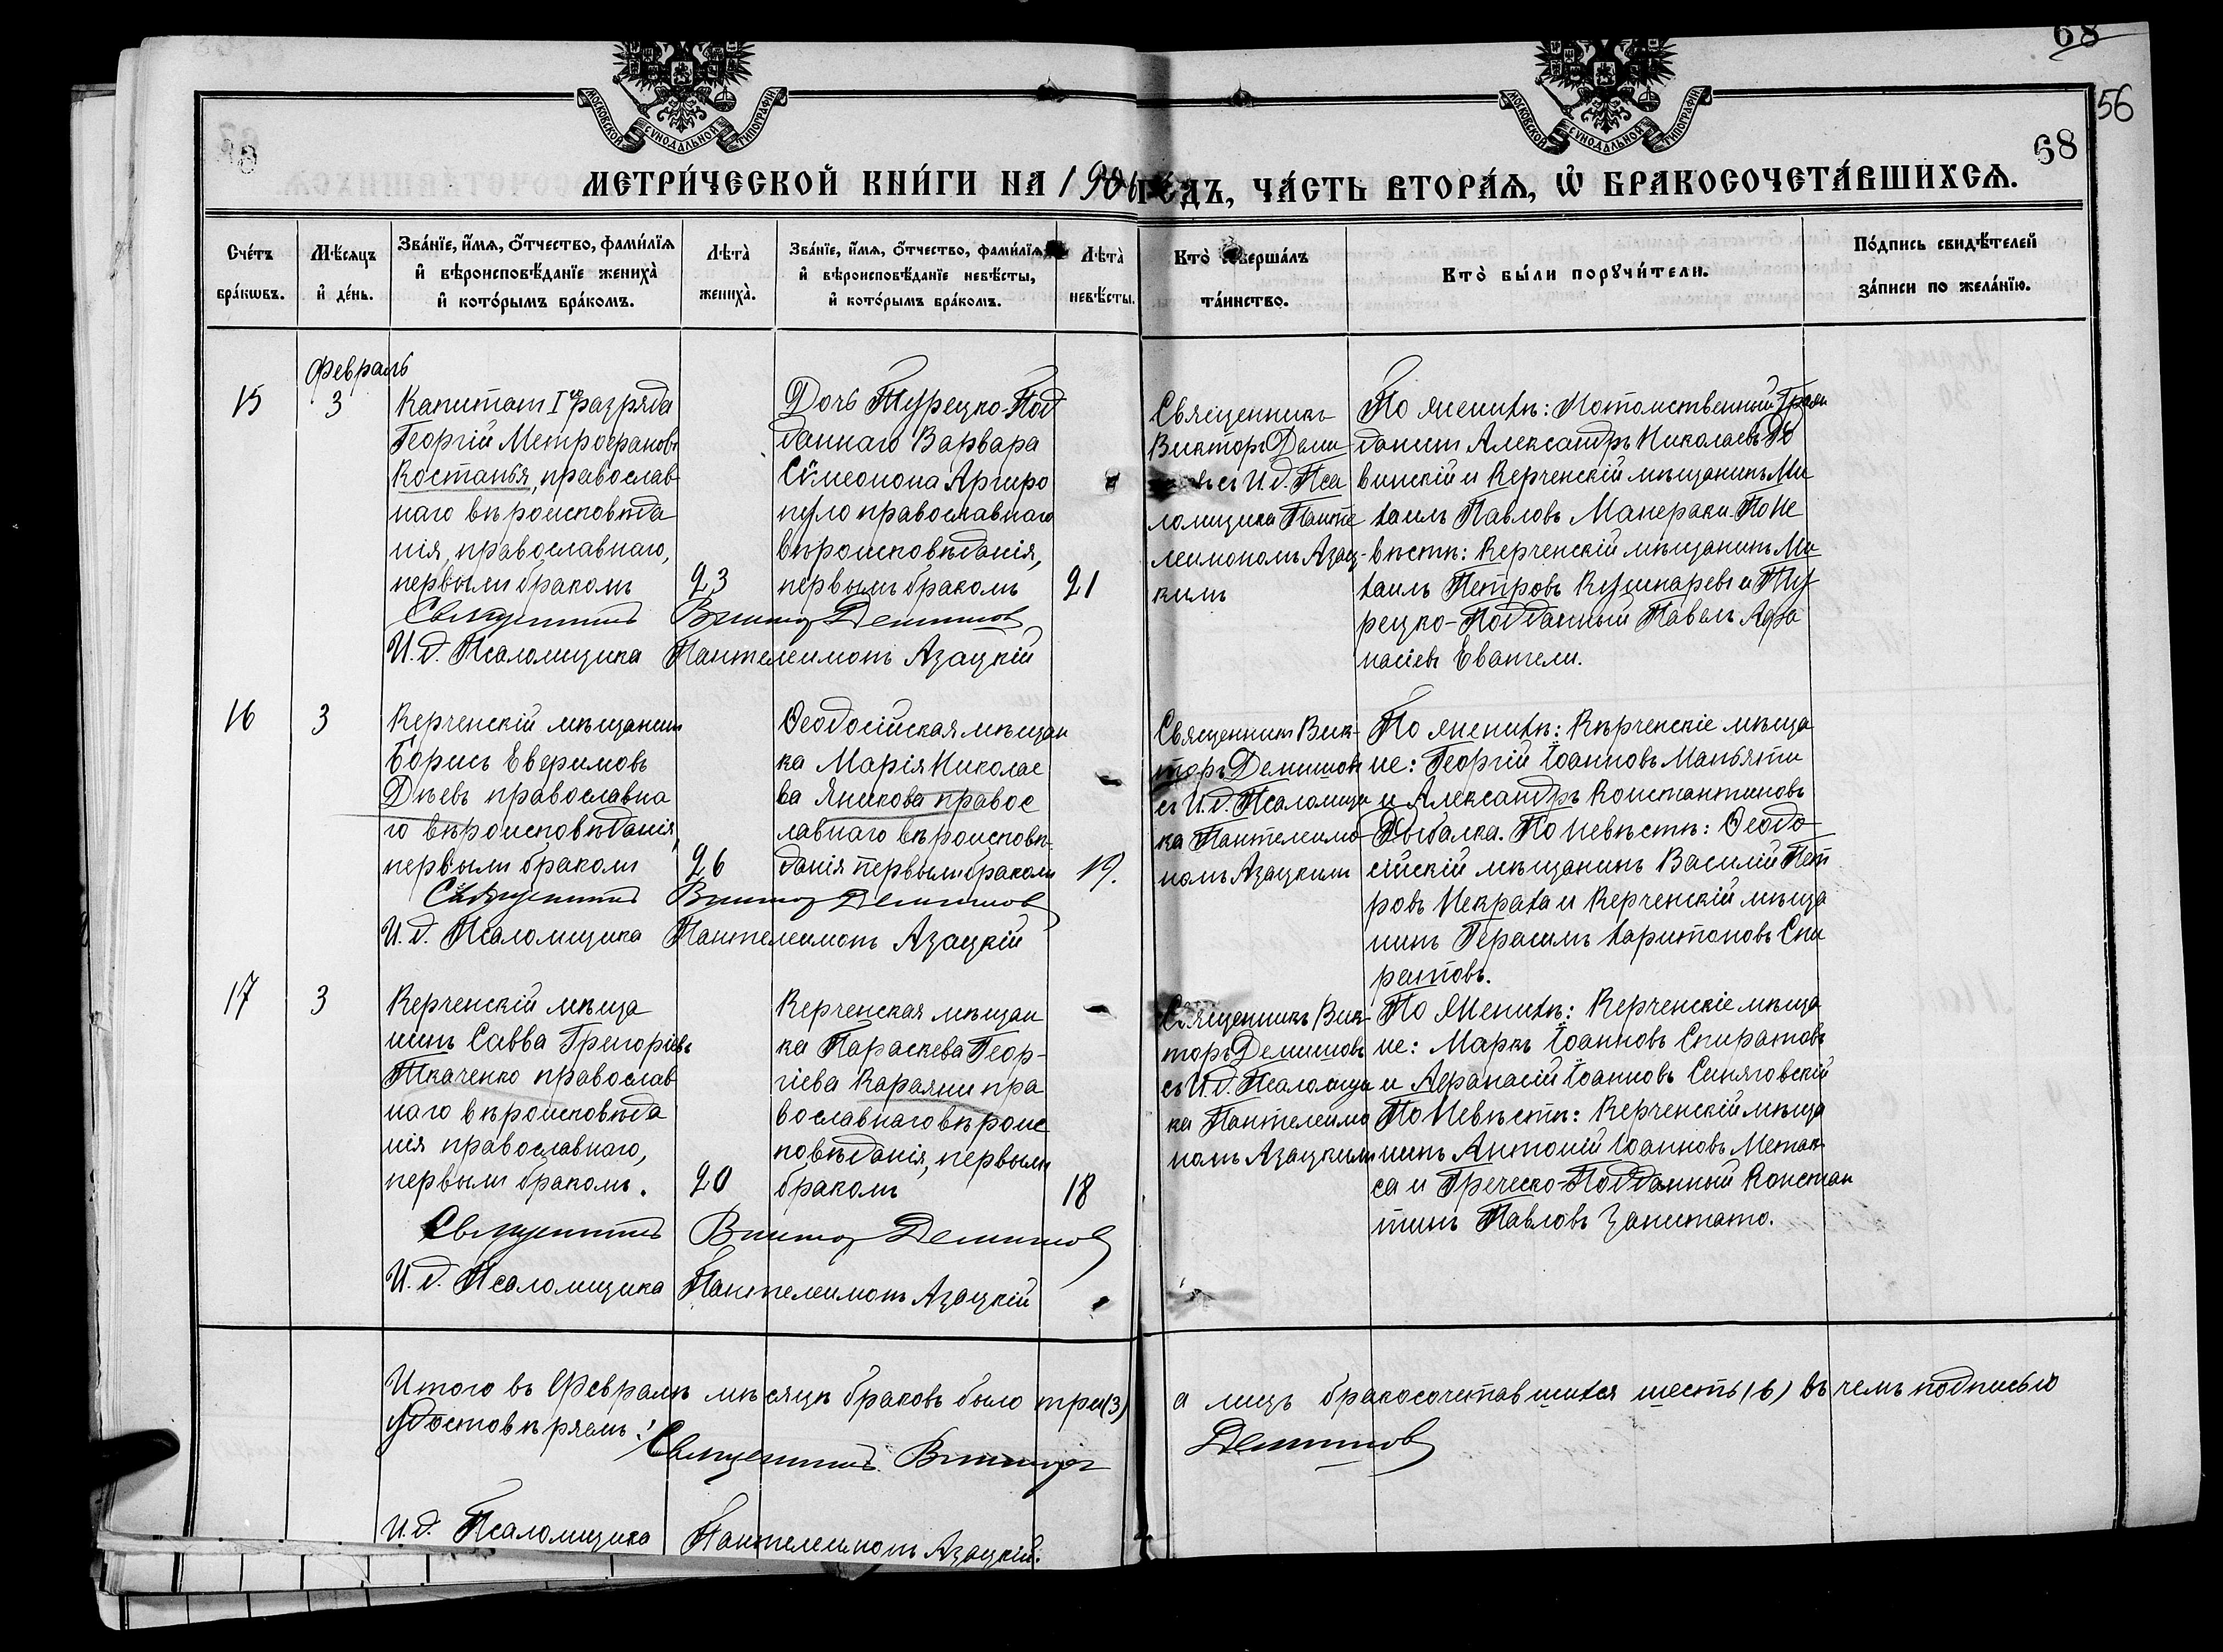 68
56
68
МОСКОВСКОЙ СѴНОДАЛЬНОЙ ТИПОГРАФІИ
МОСКОВСКОЙ СѴНОДАЛЬНОЙ ТИПОГРАФІИ
МЕТРИ́ЧЕСКОЙ КНИ́ГИ НА 1906 ГО́ДЪ, ЧА́СТЬ ВТОРА́Я, Ѡ҆ БРАКОСОЧЕТА́ВШИХСЯ.
Сче́тъ
бра́кѡвъ.
Мѣ́сяцъ
и҆ де́нь.
Зва́нїе, и҆́мя, ѻ҆́тчество, фами́лїя
и҆ вѣроисповѣ́данїе жениха̀
и҆ кото́рымъ бра́комъ.
Лѣ́та̀
жениха̀.
Зва́нїе, и҆́мя, ѻ҆́тчество, фами́лїя
и҆ вѣроисповѣ́данїе невѣ́сты,
и҆ кото́рымъ бра́комъ.
Лѣ́та̀
невѣ́сты.
Кто̀ соверша́лъ
та́инство.
Кто̀ бы́ли порꙋчи́тели.
По́дпись свидѣ́телей
за́писи по жела́нїю.
Февраль
15
3
Капитан I го разряда
Георгій Метрофановъ
Костанья, православ
наго вѣроисповѣда
нія, православнаго,
первымъ бракомъ
23
Дочь Турецко-Под
даннаго Варвара
Сѵмеонова Аргиро
пуло православнаго
вѣроисповѣданія,
первымъ бракомъ
21
Священникъ
Викторъ Деми
съ И.д. Пса
ломщика Панте
леимономъ Азац-
кимъ
По женихѣ: Потомственный Граж
данинъ Александръ Николаевъ
винскій и Керченскій мѣщанинъ Ми
хаилъ Павловъ Манераки. По не
вѣстѣ: Керченскій мѣщанинъ Ми
хаилъ Петровъ Кушнаревъ и Ту
рецко-Подданный Павелъ Афа
насіевъ Евангели.
Священникъ Викторъ Демишов
И.д. Псаломщика Пантелеимонъ Азацкій
16
3
Керченскій мѣщанинъ
Борисъ Еверимовъ
Дѣевъ православна
го вѣроисповѣданія,
первымъ бракомъ
26
Ѳеодосійская мѣщан
ка Марія Николае
ва Яникова правос
лавнаго вѣроисповѣ
данія первымъ бракомъ
19.
Священникъ Вик-
торъ Демишовъ
съ И.д. Псаломщи
ка Пантелеимо
номъ Азацкимъ
По женихѣ: Кѣрченскіе мѣща
не: Георгій Іоанновъ Маньяти
и Александръ Константиновъ
Рыбалка. По невѣстѣ: Ѳеодо
сійскій мѣщанинъ Василій Пет
ровъ Некраха и Керченскій мѣща
нинъ Герасимъ Харитоновъ Спи
ратовъ.
Священникъ Викторъ Демишов
И.д. Псаломщика Пантелеимонъ Азацкій
17
3
Керченскій мѣща
нинъ Савва Григоріевъ
Ткаченко православ
наго вѣроисповѣда
нія православнаго,
первымъ бракомъ.
20
Керченская мѣщан
ка Параскева Геор-
гіева Караяни пра
вославнаго вѣроис
повѣданія, первымъ
бракомъ
18
Священникъ Вик-
торъ Демишовъ
съ И.д. Псаломщи
ка Пантелеимо
номъ Азацкимъ
По Женихѣ: Керченскіе мѣща
не: Маркъ Іоанновъ Спиратовъ
и Афанасій Іоанновъ Синяговскій
По Невѣстѣ: Керченскій мѣща
нинъ Антоній Іоанновъ Метак
са и Греческо-Подданный Констан
тинъ Павловъ Занитато.
Священникъ Викторъ Демишов
И.д. Псаломщика Пантелеимонъ Азацкій
Итого въ Февралѣ мѣсяцѣ браковъ было три (3) а лицъ бракосочетавшихся шесть (6) въ чемъ подписью
удостовѣряемъ: Священникъ Викторъ Демишов
И.д. Псаломщика Пантелеимонъ Азацкій.